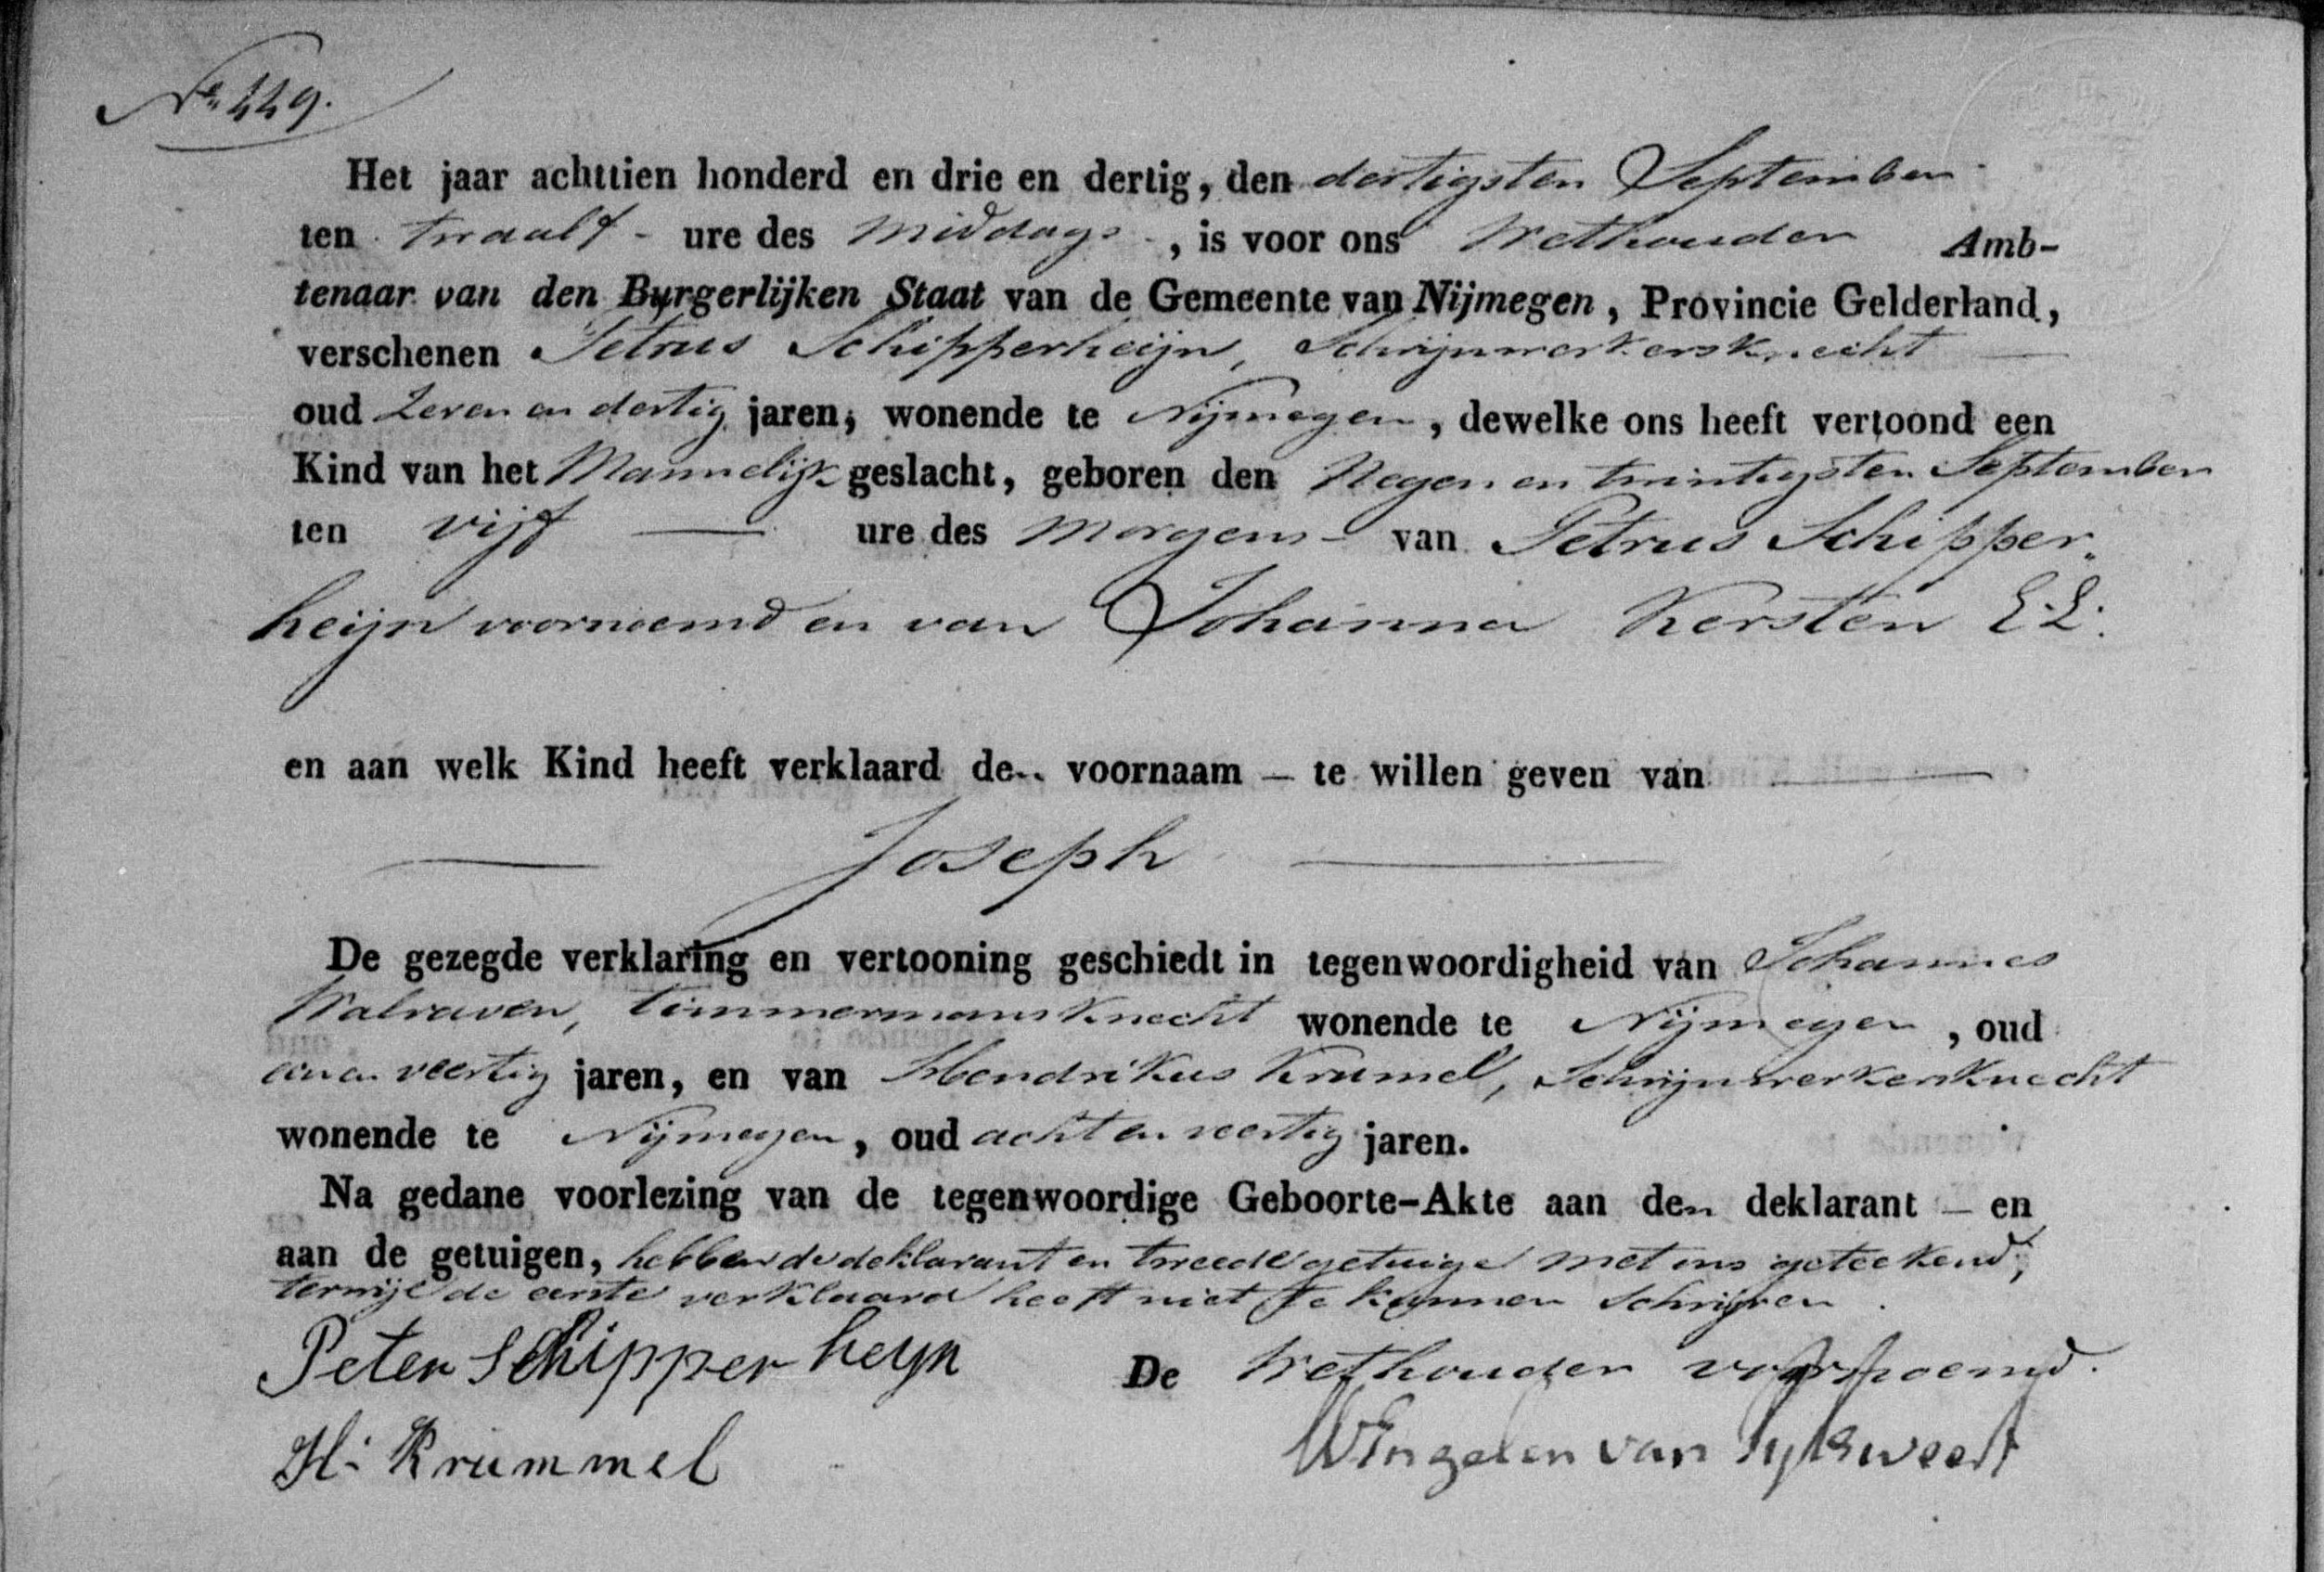 No 449.
Het jaar achttien honderd en drie en dertig, den dertigsten September
ten twaalf - ure des Middags -, is voor ons Wethouder Amb-
tenaar van den Burgerlijken Staat van de Gemeente van Nijmegen, Provincie Gelderland,
verschenen Petrus Schipperheijn, Schrijnwerkersknecht —
oud Zeven en dertig jaren, wonende te Nijmegen, dewelke ons heeft vertoond een
Kind van het Mannelijk geslacht, geboren den Negen en twintigsten September
ten vijf — ure des Morgens - van Petrus Schipper„
heijn voornoemd en van Johanna Kersten E:L:
en aan welk Kind heeft verklaard den voornaam — te willen geven van —
— Joseph —
De gezegde verklaring en vertooning geschiedt in tegenwoordigheid van Johannes
Walraven, timmermansknecht wonende te Nijmegen, oud
een en veertig jaren, en van Hendrikus Krumel, Schrijnwerkersknecht
wonende te Nijmegen, oud acht en veertig jaren.
Na gedane voorlezing van de tegenwoordige Geboorte-Akte aan den deklarant — en
aan de getuigen, hebben de deklarant en tweede getuige met ons geteekend,
terwijl de eerste verklaard heeft niet te kunnen Schrijven.
Peter Schipperheyn De Wethouder voornoemd.
H: Krummel WEngelen van Pylsweert